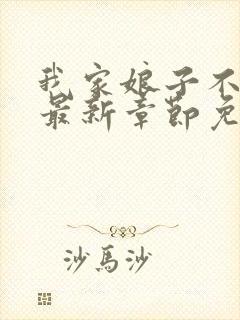 我家娘子不
最新章節免
沙馬沙